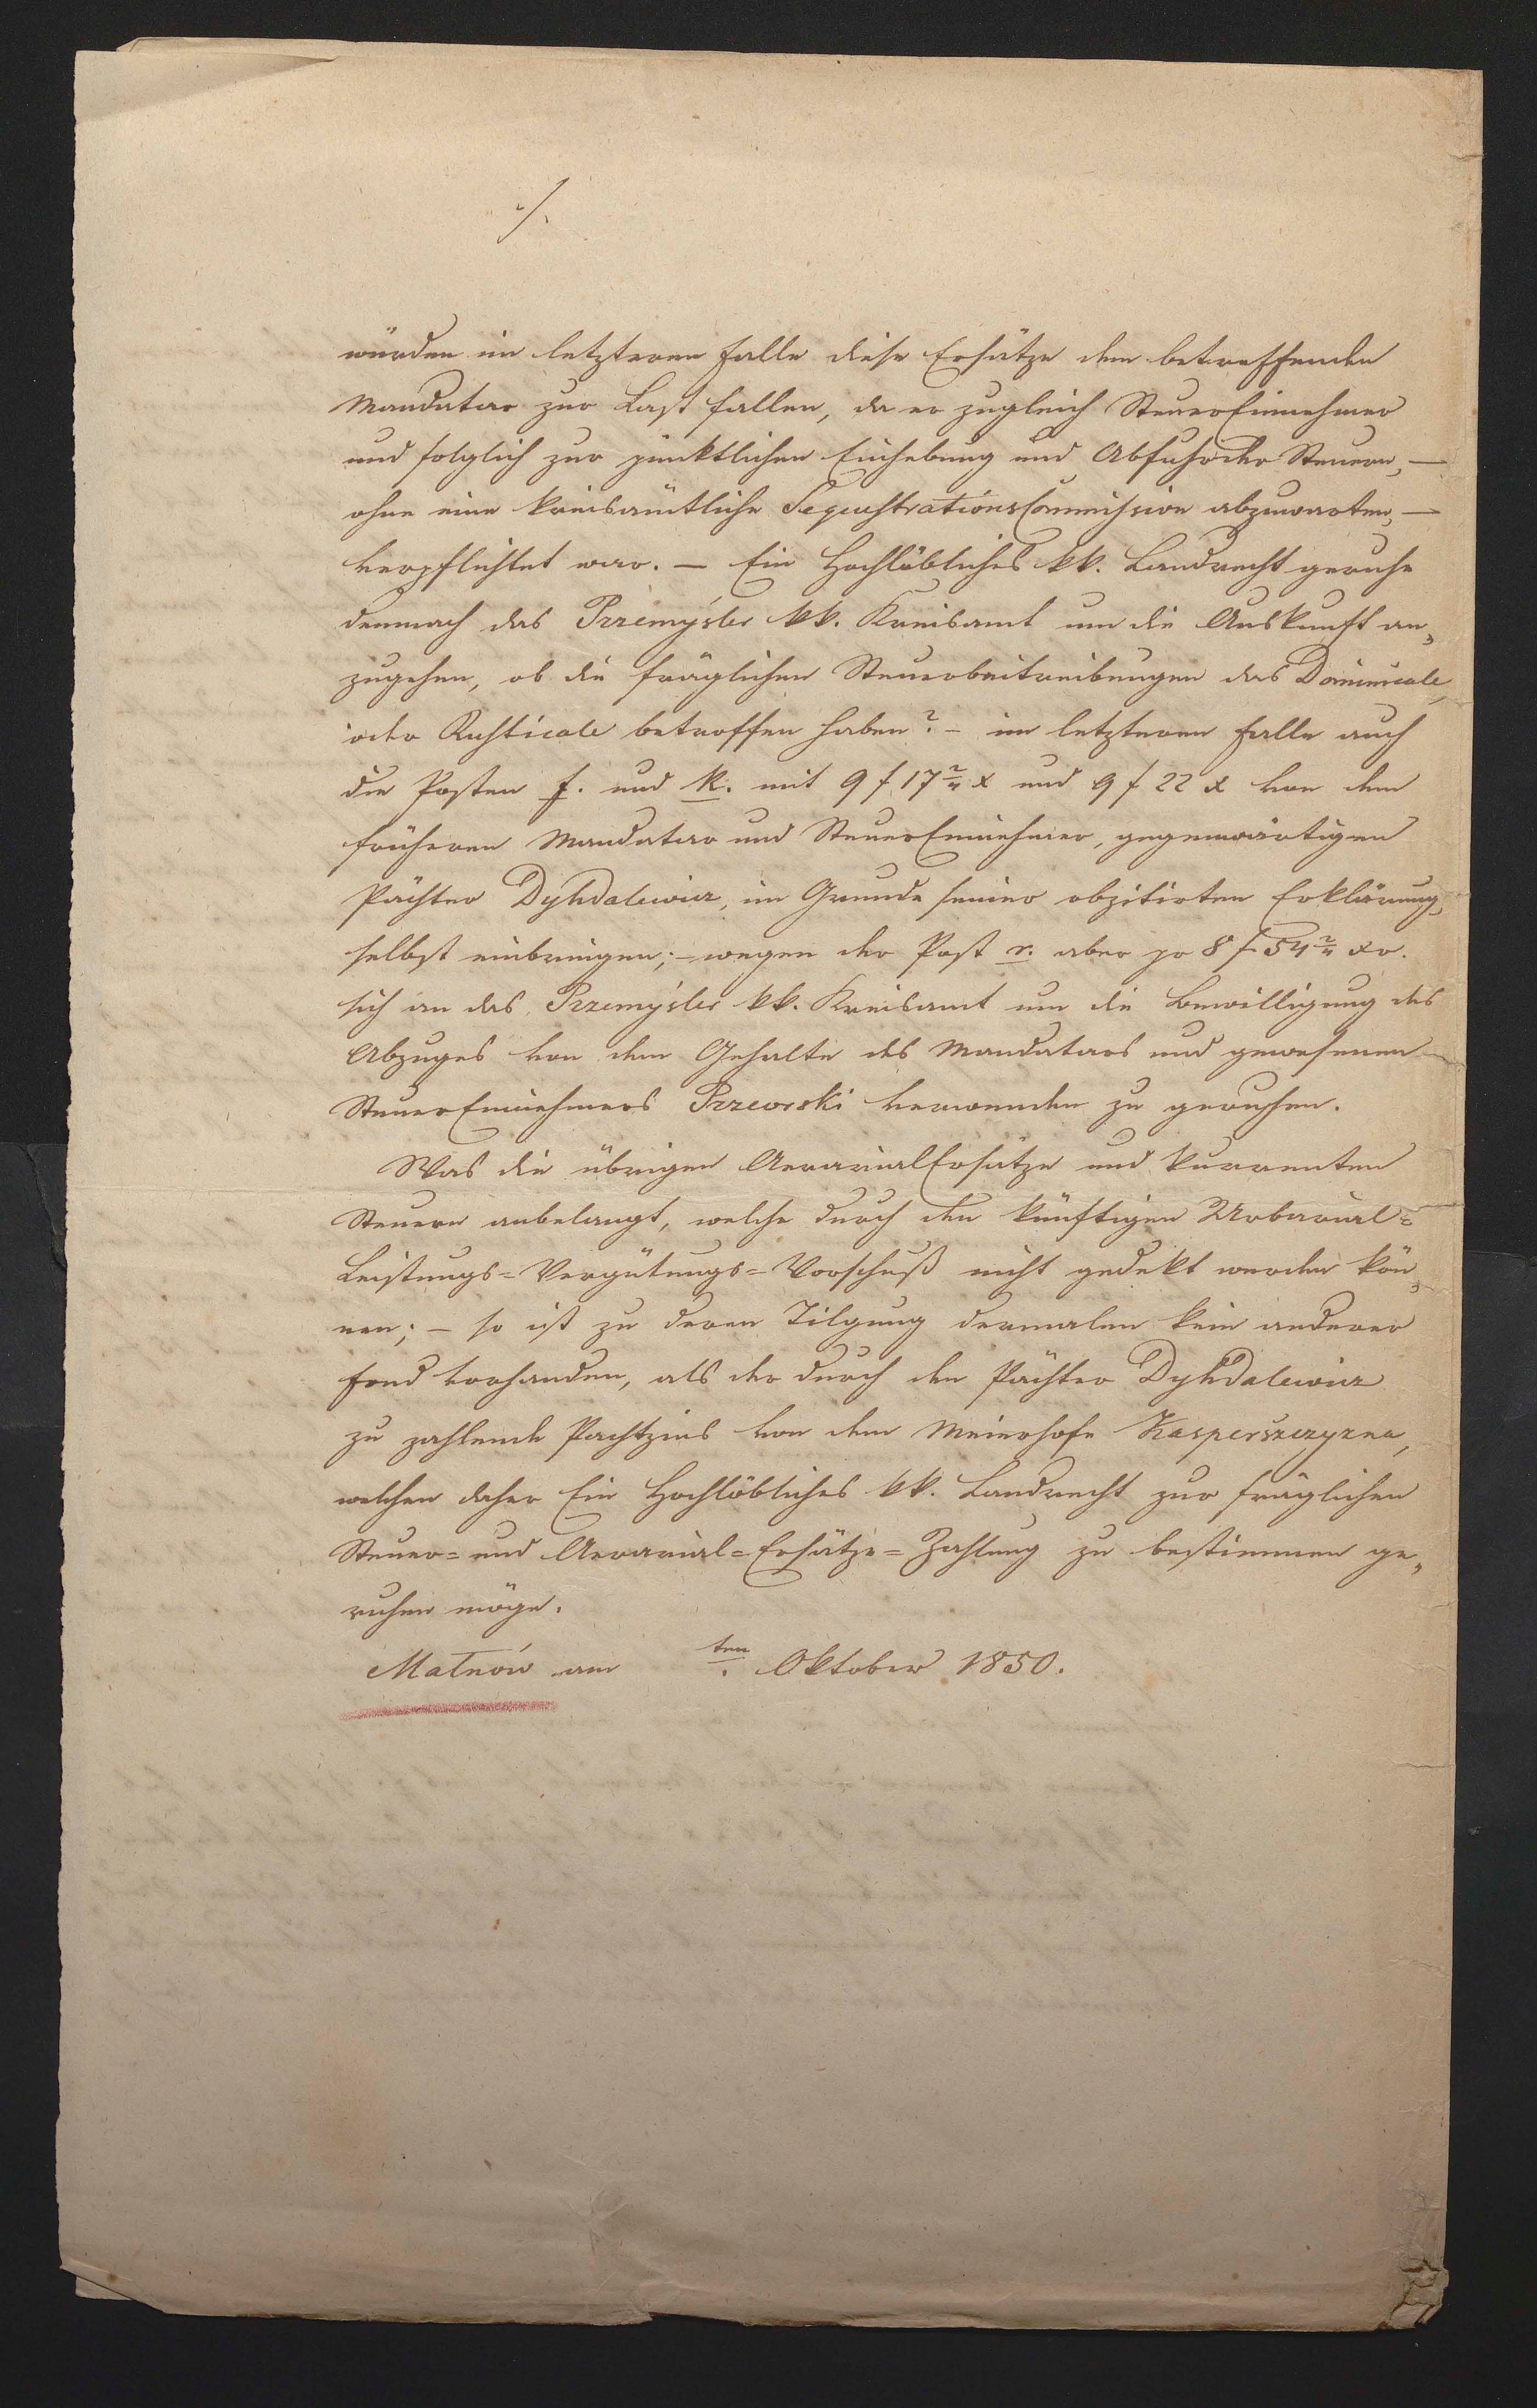 ./.
würden im letzteren Falle diese Ersätze dem betreffenden
Mandatar zur Last fallen, da er zugleich SteuerEinnehmer
und folglich zur pünktlichen Einhebung und Abfuhr der Steuern, —
ohne eine kreisämtliche SequestrationsCommission abzuwarten, —
verpflichtet war. — Ein Hochlöbliches kk. Landrecht geruhe
demnach das Przemysler kk. Kreisamt um die Auskunft an„
zugehen, ob die fräglichen Steuerbeitreibungen das Dominicale,
oder Rusticale betroffen haben? – im letzteren Falle auch
die Posten f. und k. mit 9 f 17 2/4 x und 9 f 22 x von dem
früheren Mandatar und SteuerEinnehmer, gegenwärtigen
Pächter Dyhdalewicz, im Grunde seiner obzitirten Erklärung,
selbst einbringen; – wegen der Post r. aber pr 8 f 54 2/4 xr.
sich an das Przemysler kk. Kreisamt um die Bewilligung des
Abzuges von dem Gehalte des Mandatars und gewesenen
SteuerEinnehmers Przeorski verwenden zu geruhen.
Was die übrigen AerarialErsätze und kurrenten
Steuern anbelangt, welche durch den künftigen Urbarial=
Leistungs=Vergütungs=Vorschuß nicht gedekt werden kön„
nen; – so ist zu deren Tilgung dermalen kein anderer
Fond vorhanden, als der durch den Pächter Dyhdalewicz
zu zahlende Pachtzins von dem Meierhofe Kasperszczyzna,
welchen daher Ein Hochlöbliches kk. Landrecht zur fräglichen
Steuer= und Aerarial=Ersätze=Zahlung zu bestimmen ge„
ruhen möge.
Małnów am ten. Oktober 1850.